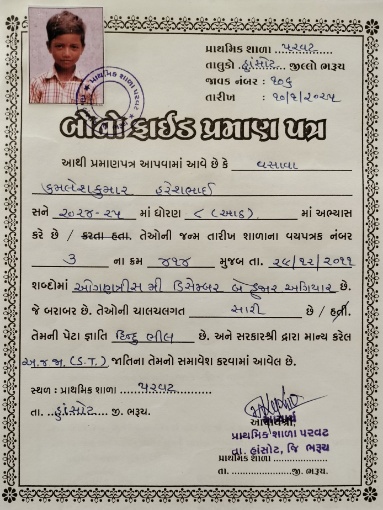 પ્રાથમિક શાળા પરવટ
તાલુકો હાંસોટ જીલ્લો ભરૂચ
જાવક નંબર : ૧૦૬
તારીખ : ૧૦/૧/૨૦૨૫
પ્રાથમિક શાળા પરવટ
બોનો ફાઈડ પ્રમાણ પત્ર
આથી પ્રમાણપત્ર આપવામાં આવે છે કે વસાવા
કમલેશકુમાર હરેશભાઈ
સને ૨૦૨૪-૨૫ માં ધોરણ ૮ (આઠ). માં અભ્યાસ
કરે છે / કરતા હતા. તેઓની જન્મ તારીખ શાળાના વયપત્રક નંબર
૩ ના ક્રમ ૪૧૪ મુજબ તા. ૨૯/૧૨/૨૦૧૧
શબ્દોમાં ઓગણત્રીસ મી ડિસેમ્બર બે હજાર અગિયાર છે.
જે બરાબર છે. તેઓની ચાલચલગત સારી છે / હતી.
તેમની પેટા જ્ઞાતિ હિન્દુ ભીલ છે. અને સરકારશ્રી દ્વારા માન્ય કરેલ
અ.જ.જા. (S.T.) જાતિના તેમનો સમાવેશ કરવામાં આવેલ છે.
સ્થળ : પ્રાથમિક શાળા પરવટ
તા. હાંસોટ જી. ભરૂચ.
આચાર્યશ્રી,
આચાર્ય
પ્રાથમિક શાળા પરવટ
તા. હાંસોટ, જિ ભરૂચ
પ્રાથમિક શાળા
તા. જી. ભરૂચ.